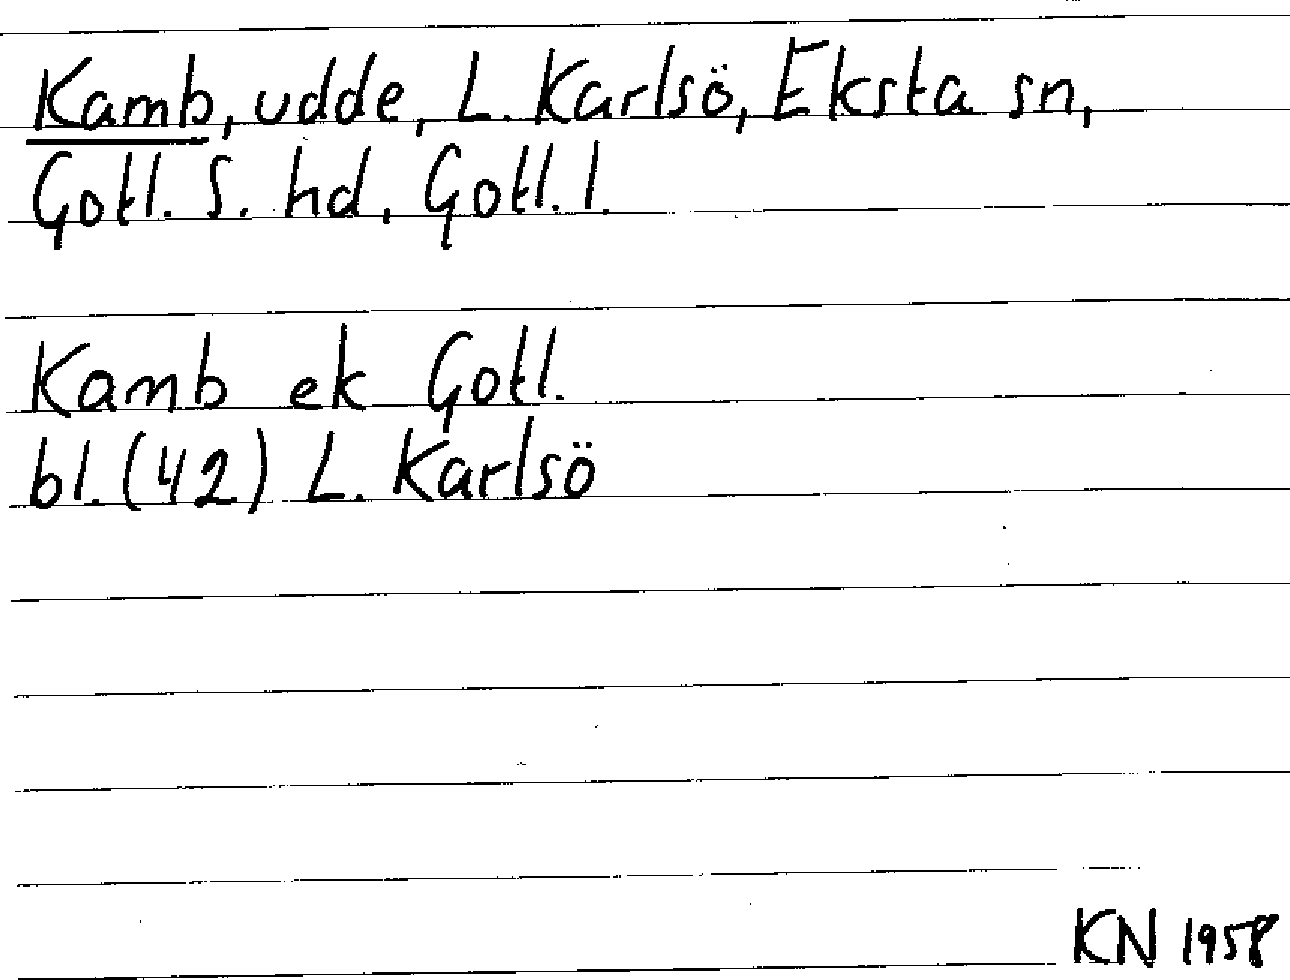 Kamb, udde, L. Karlsö, Eksta sn,
Gotl. S. hd, Gotl. l.
Kamb ek Gotl.
bl. (42) L. Karlsö
KN 1958